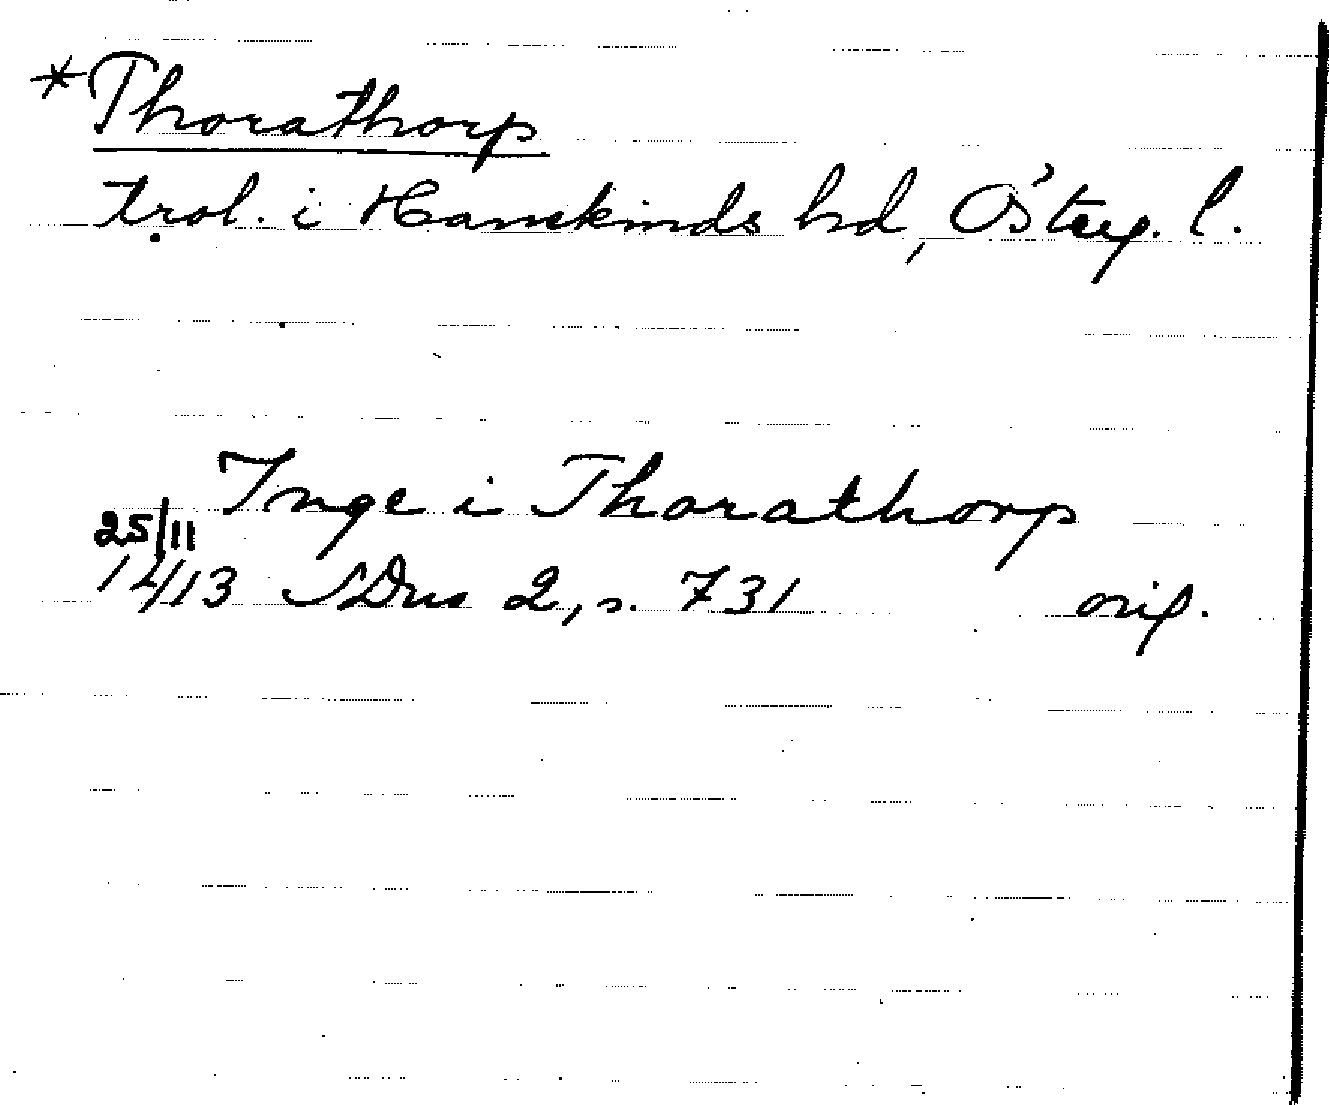 *Thorathorp
trol. i Hanekinds hd, Österg. l.
Inge i Thorathorp
25/11
1413 SDns 2, s. 731 orig.